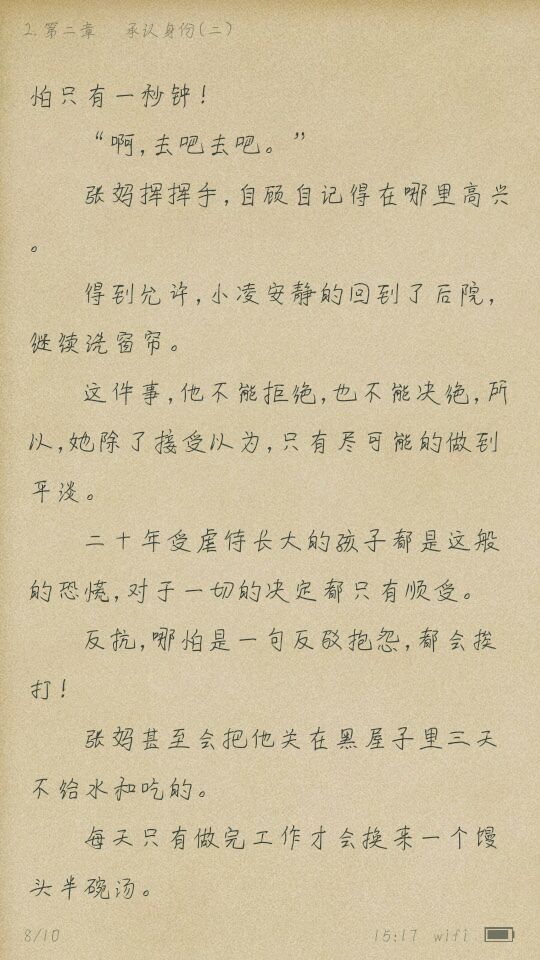 2.第二章 承认身份(二)
怕只有一秒钟!
“啊,去吧去吧。”
张妈挥挥手,自顾自记得在哪里高兴
。
得到允许,小凌安静的回到了后院,
继续洗窗帘。
这件事,他不能拒绝,也不能决绝,所
以,她除了接受以为,只有尽可能的做到
平淡。
二十年受虐待长大的孩子都是这般
的恐慌,对于一切的决定都只有顺受。
反抗,哪怕是一句反驳抱怨,都会挨
打!
张妈甚至会把他关在黑屋子里三天
不给水和吃的。
每天只有做完工作才会换来一个馒
头半碗汤。
8/10 15:17 wifi